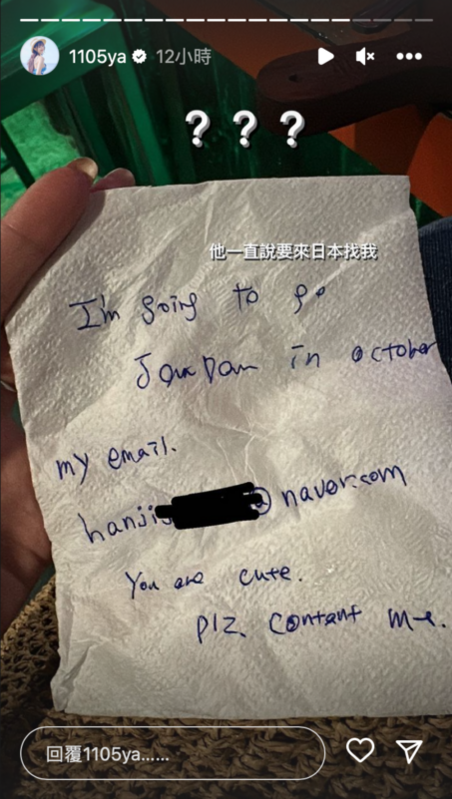 1105ya 12小時
? ? ?
他一直說要來日本找我
I'm going to go
Jaupan in october
my email.
hanji @naver.com
You are cute.
plz. contant me.
回覆1105ya......